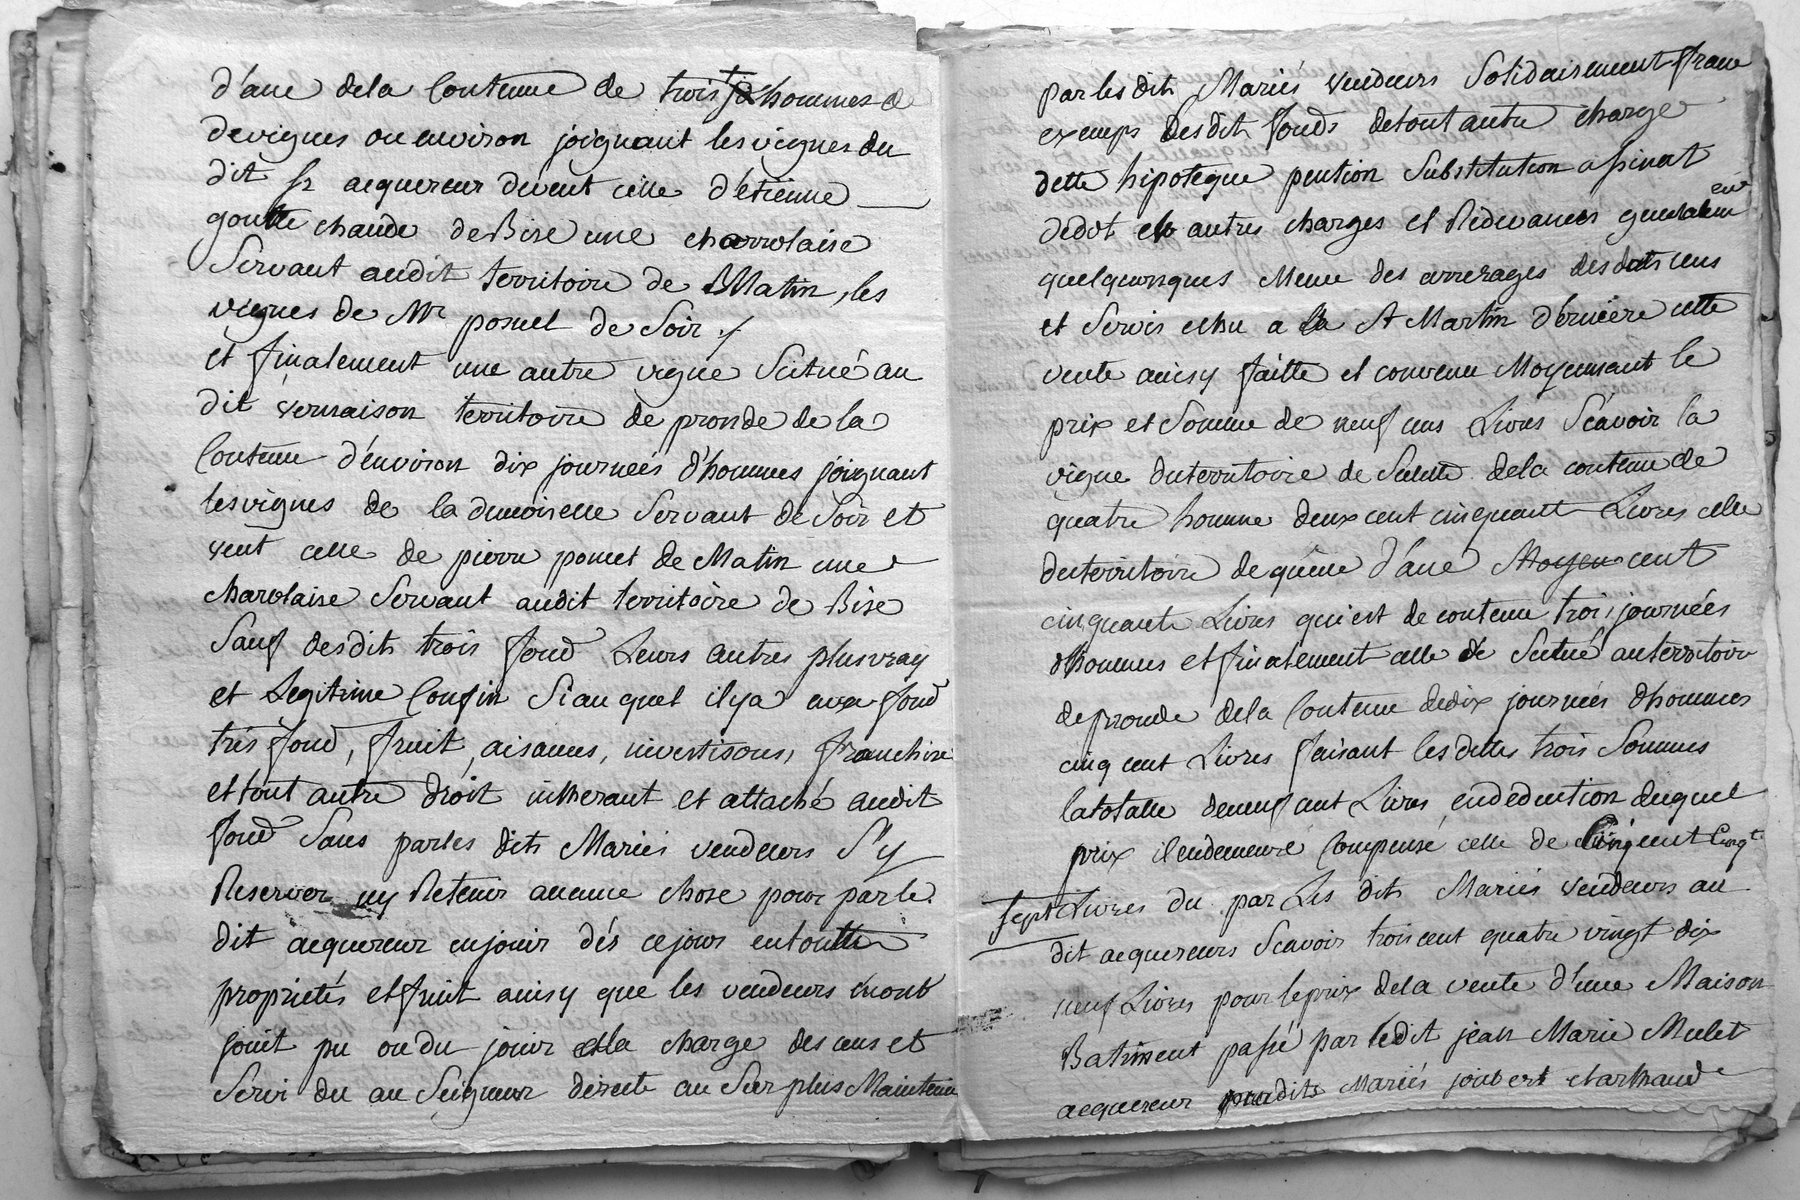 d'ane dela Contenue de trois jrs hommes de
devignes ou environ joignant les vignes du
dit sr acquereur devent celle d'etienne
goutte chaude de Bise une charrolaise
Servant audit territoire de Matin, les
vignes de Mr pomet de Soir /
et finalement une autre vigne Scitué au
dit vernaison territoire de pronde de la
Contenue d'environ dix journeés d'hommes joignant
lesvignes de la demoiselle Servant de Soir et
vent celle de pierre pomet de Matin une
charolaise Servant audit territoire de Bise
Sauf desdits trois fond Leurs autres plusvray
et Legitime Confin Siauquel ilya avec fond
trés fond, fruit, aisances, investisons, franchise
et tout autre droit inherant et attaché audit
fond Sans parles dits Mariés vendeurs S'y
Reserver ny Retenir aucune chose pour parle
dit acquereur enjouir dés cejour entoutte
proprietés et fruit ainsy que les vendeurs enont
jouit pu oudu jouir et la charge des cens et
Servi du au Seigneur directe au Surplus Maintenue
par les dits Mariés vendeurs Solidairement franc
exemps desdits fonds detout autre charge
dette hipoteque pention Substitution assinat
dedot et autres charges et Redevances generalem ent
quelquonques Meme des arrerages desdits cens
et Servis echu a la St Martin d'erniére cette
vente ainsy faitte et convenue Moyennant le
prix et Somme de neuf cens Livres Scavoir la
vigne duterritoire de dela contenue de
quatre homme deux cent cinquante Livres celle
duterritoire de queue d'ane Moyen cent
cinquante Livres qui est de contenue trois journées
dhommes et finalement celle de Scitué auterritoire
depronde dela Contenue dedix journées dhommes
cinq cent Livres faisant lesdittes trois Sommes
latotalle deneuf cent Livres, endeduction duquel
prix ilendemeure Compensé celle de Cinqcent Cinqt
sept Livres du par Les dits Mariés vendeurs au
dit acquereurs Scavoir trois cent quatre vingt dix
neuf Livres pour leprix dela vente d'une Maison
Batiment passé par ledit jean Marie Mulet
acquereur audits Mariés joubert etarthaud